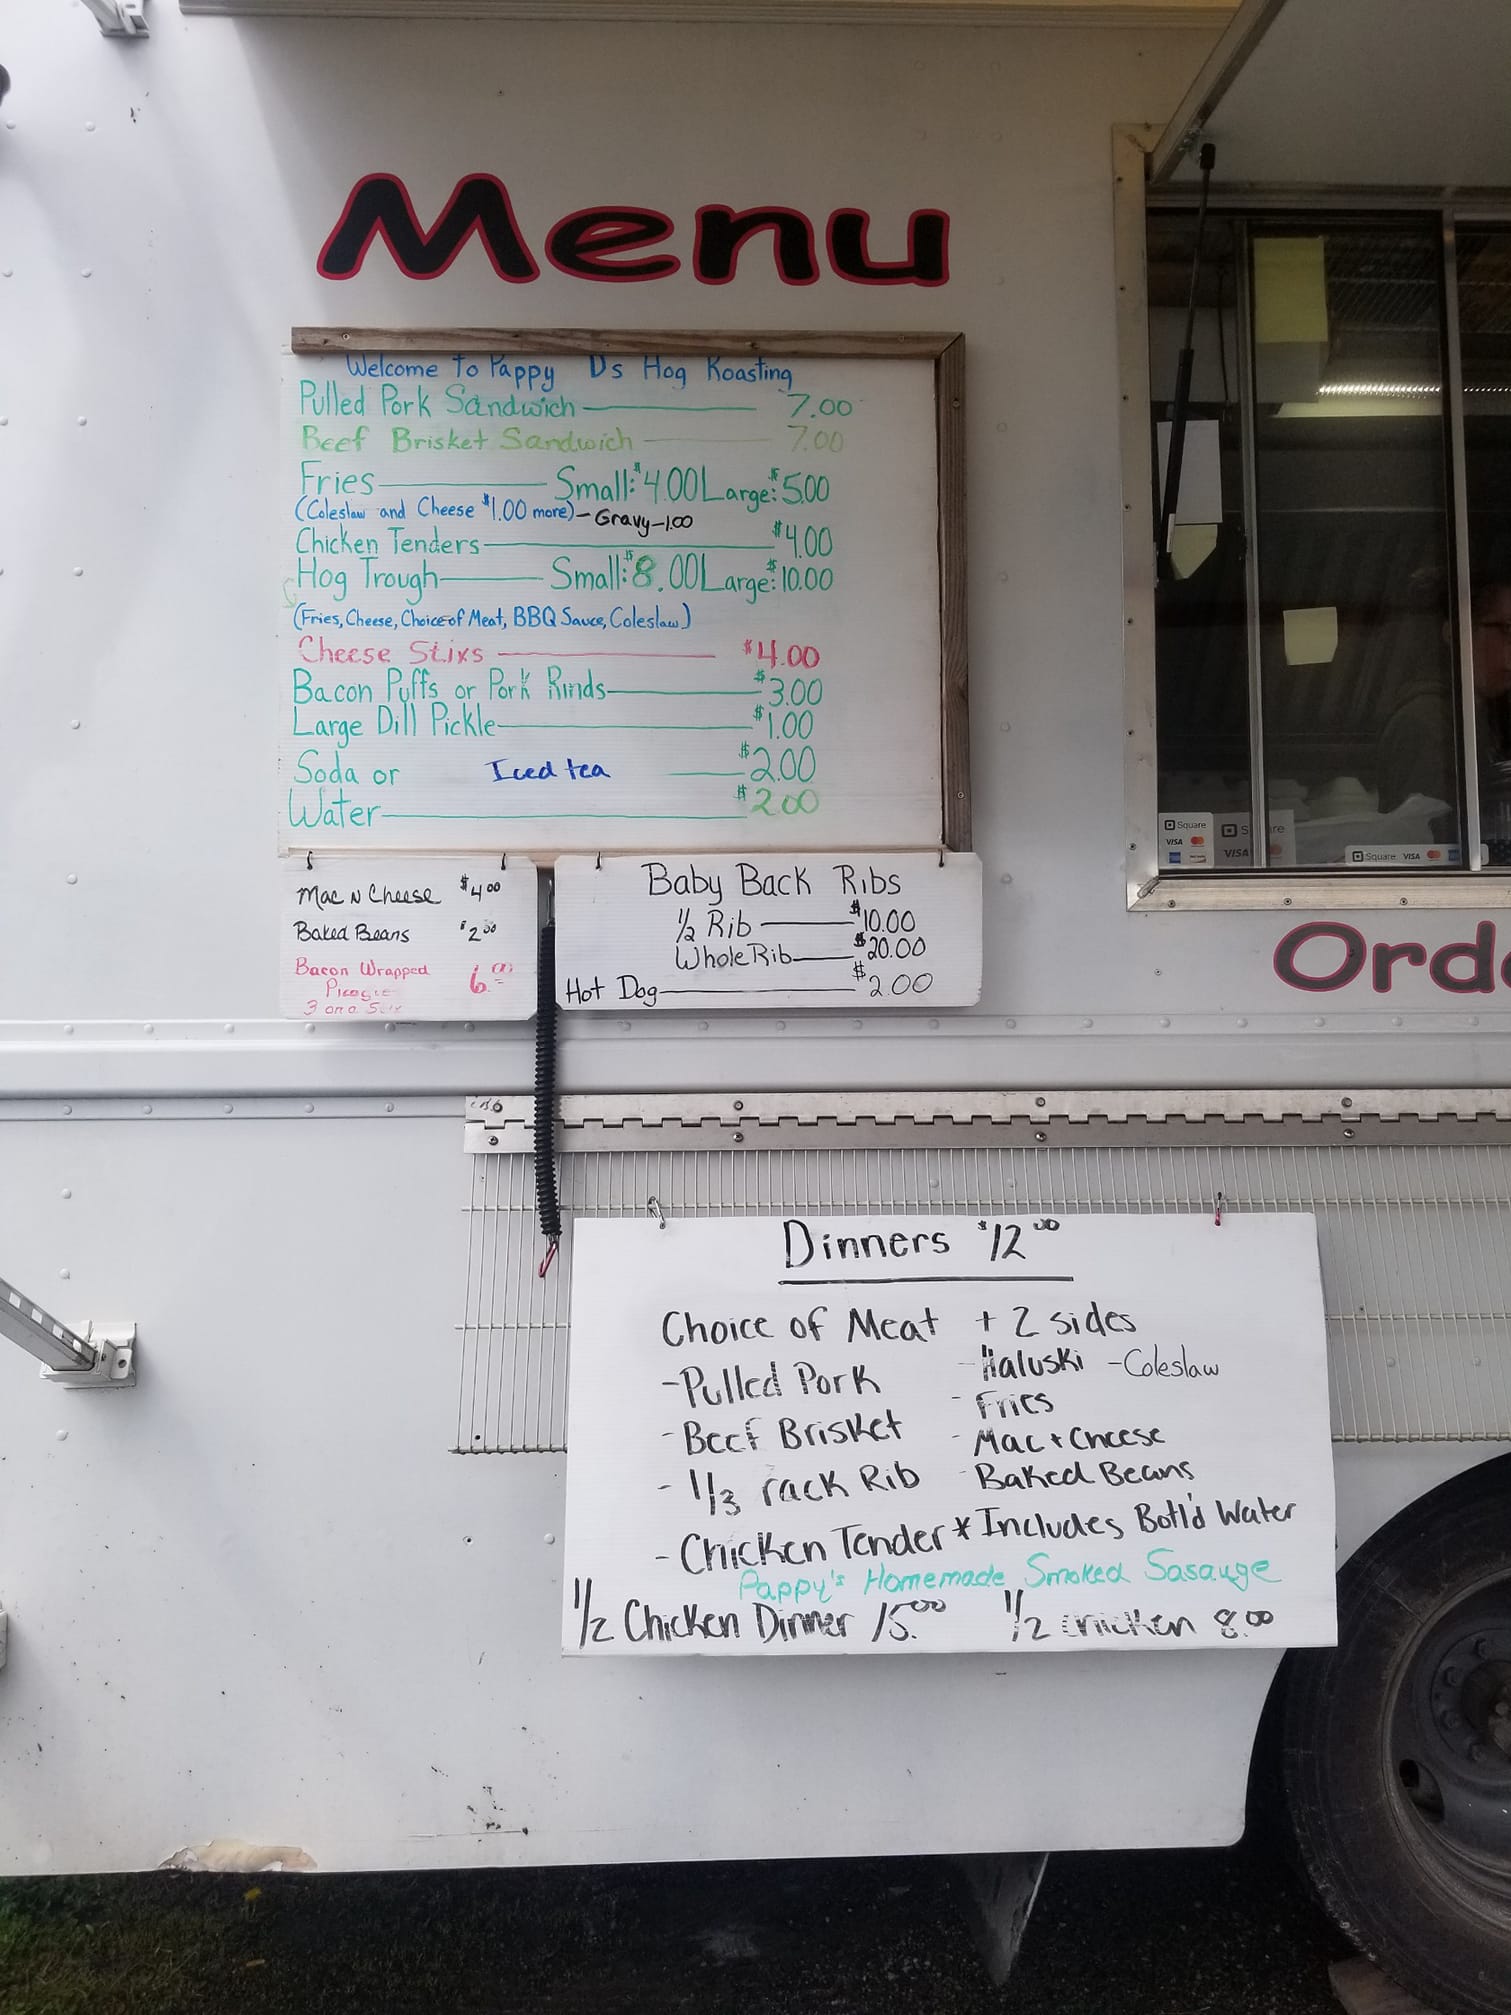 Menu
Welcome to Pappy D's Hog Roasting
Pulled Pork Sandwich 7.00
Beef Brisket Sandwich 7.00
Fries Small: $4.00 Large: $5.00
(Coleslaw and Cheese $1.00 more) - Gravy - 1.00
Chicken Tenders $4.00
Hog Trough Small: $8.00 Large: $10.00
(Fries, Cheese, Choice of Meat, BBQ Sauce, Coleslaw)
Cheese Stixs $4.00
Bacon Puffs or Pork Rinds $3.00
Large Dill Pickle $1.00
Soda or Iced tea $2.00
Water $2.00
Mac N Cheese $4.00
Baked Beans $2.00
Bacon Wrapped 6.00
3 on a Stix
Baby Back Ribs
1/2 Rib $10.00
Whole Rib $20.00
Hot Dog $2.00
Square
VISA
Square
VISA
Square VISA
Orde
Dinners $12.00
Choice of Meat + 2 sides
- Pulled Pork - Haluski - Coleslaw
- Fries
- Beef Brisket - Mac + Cheese
- 1/3 rack Rib - Baked Beans
- Chicken Tender * Includes Botl'd Water
Pappy's Homemade Smoked Sasauge
1/2 Chicken Dinner 15.00 1/2 chicken 8.00